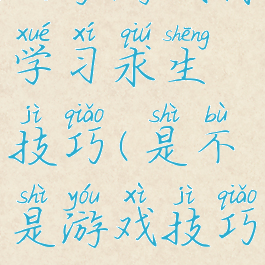 xué xí qiú shēng
学习求生
jì qiǎo shì bù
技巧(是不
shì yóu xì jì qiǎo
是游戏技巧